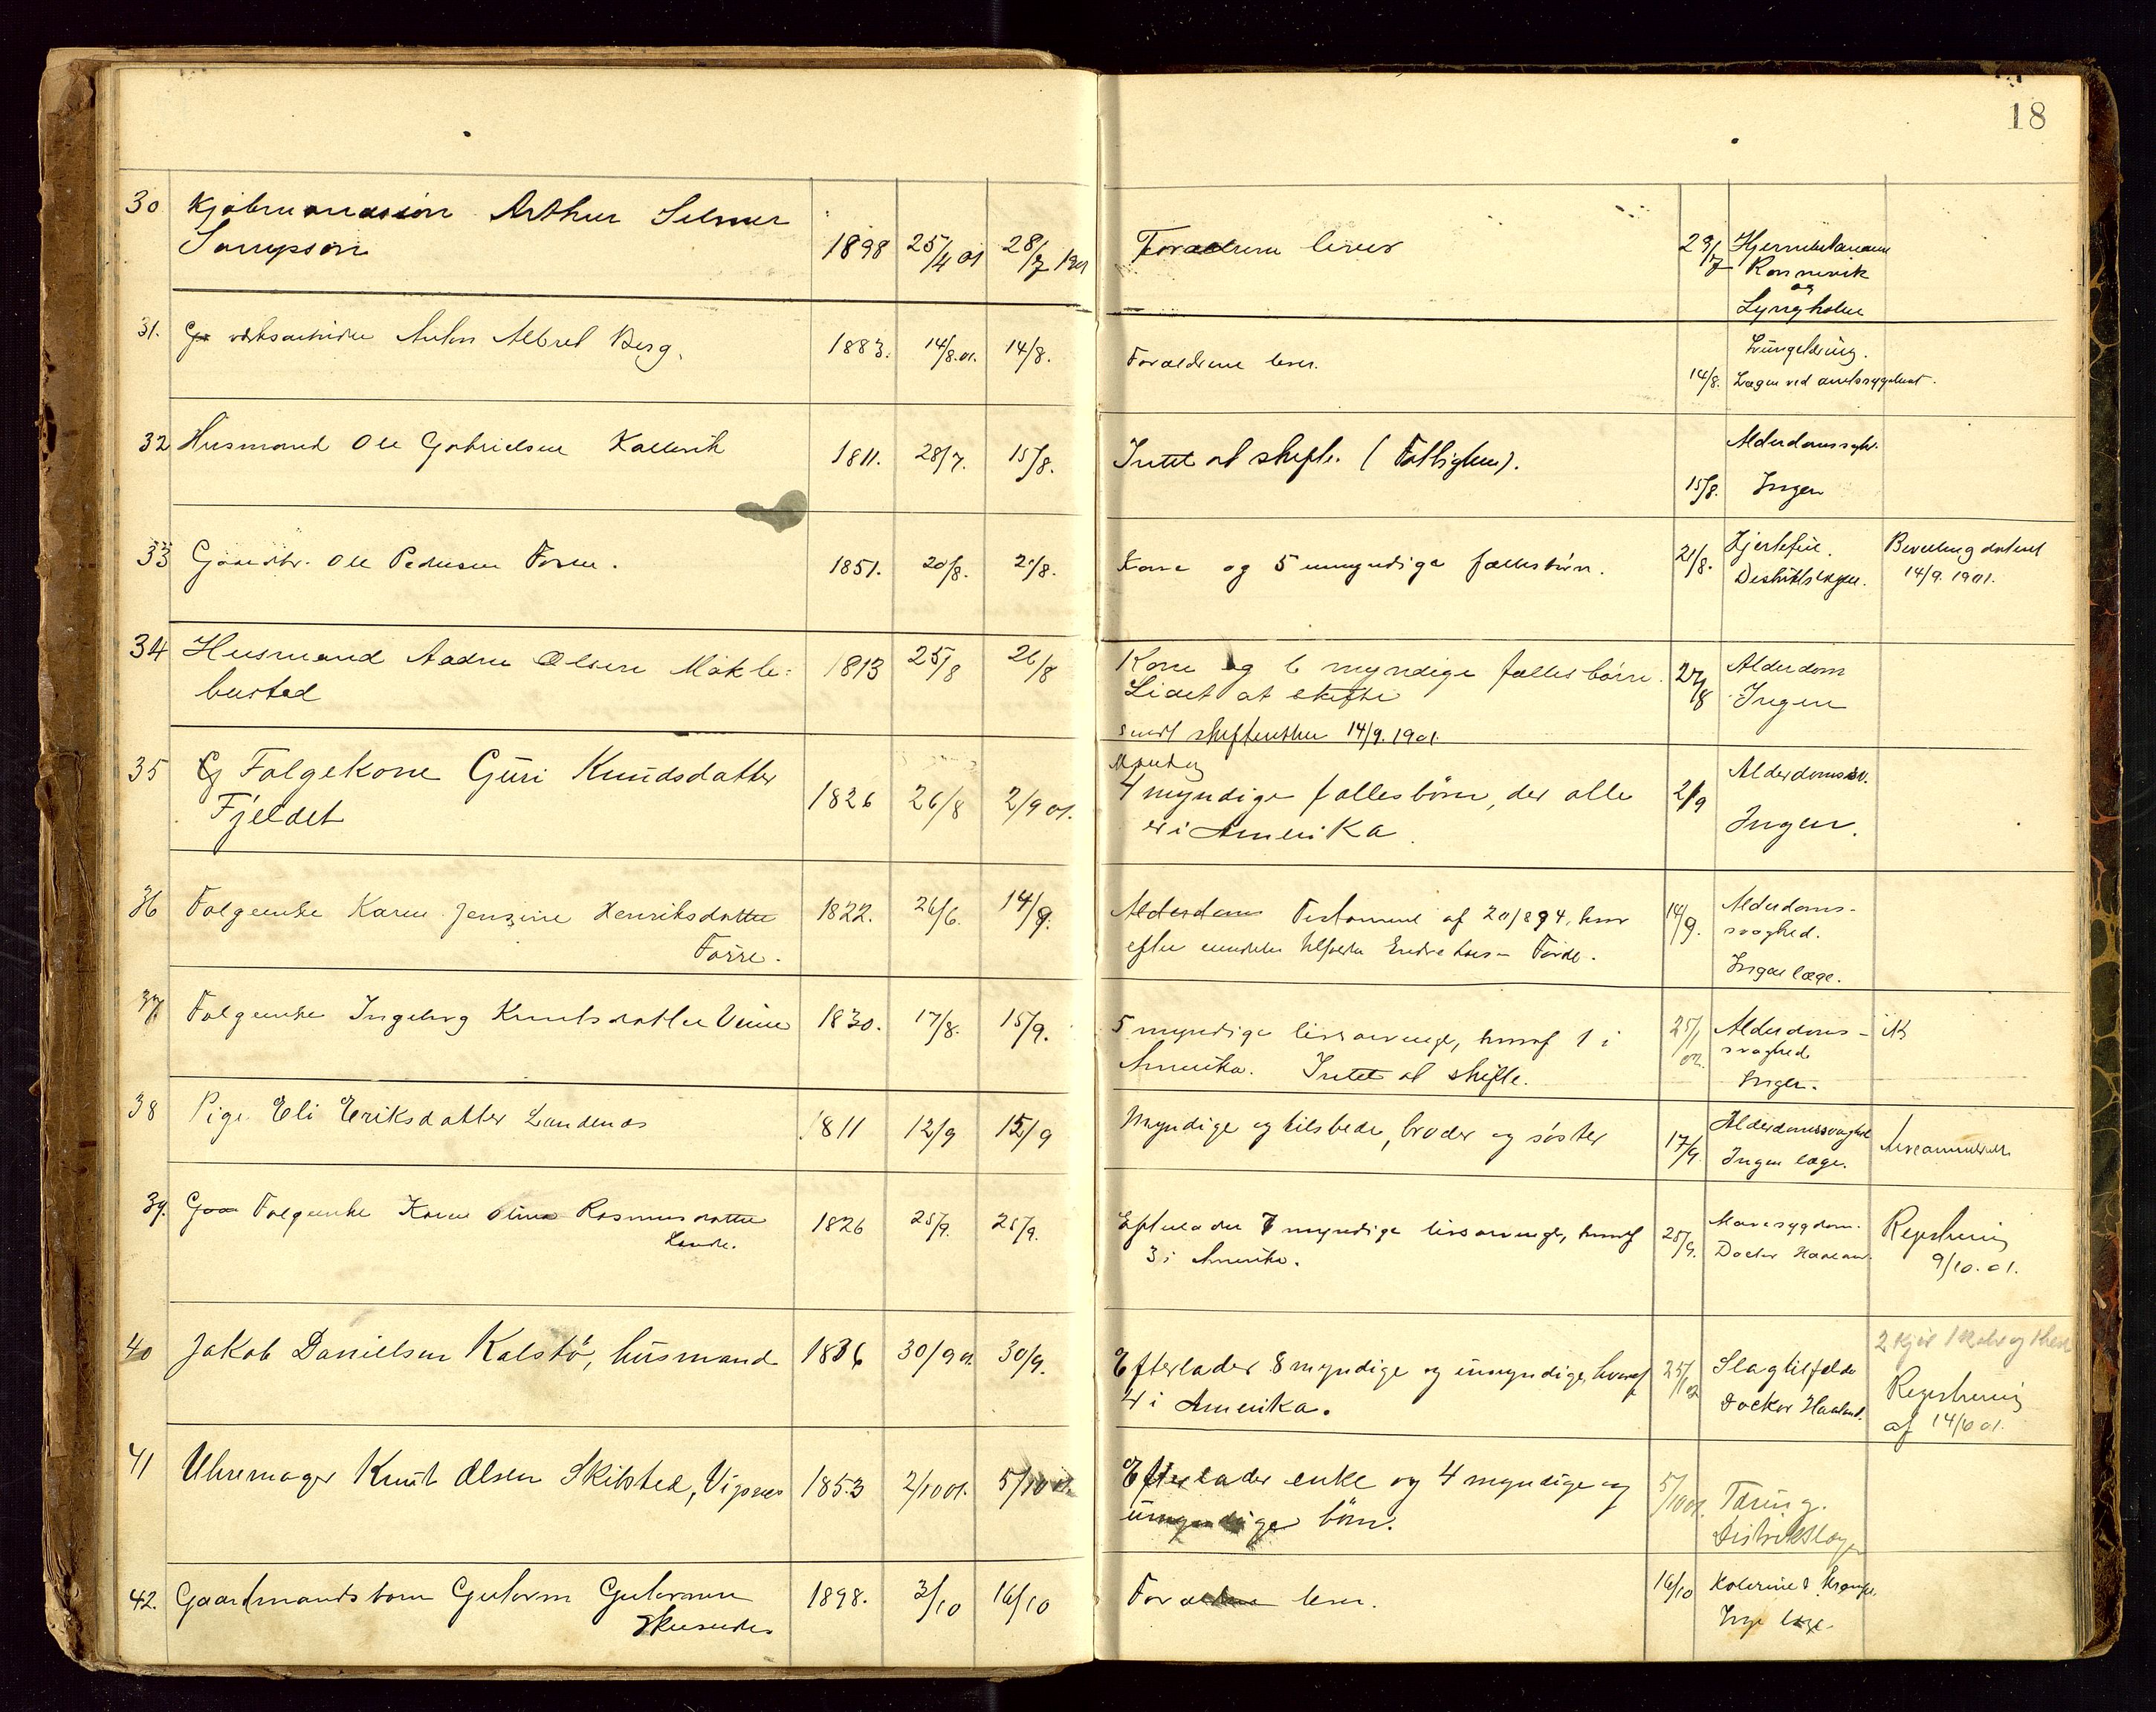 18
30 Kjøbmandssøn Arthur Selmer
Sampson 1898 25/4 01 28/7 1901 Forældrene lever 29/7 Hjernebetændelse
Rønnevik
og
Lyngholm
31. verksarbeider Anton Albret Berg. 1883. 14/8.01. 14/8. Forældrene lever. Lungetæring.
14/8. Lægen ved amtssygehuset.
32 Husmand Ole Gabrielsen Kallevik 1811. 28/7. 15/8. Intet at skifte. (Fattiglem). Alderdomssvagh.
15/8. Ingen
33 Gaardbr. Ole Pedersen 1851. 20/8. 21/8. Kone og 5 umyndige fællesbørn. 21/8. Hjertefeil. Bevilling dateret
Distriktslægen. 14/9. 1901.
34 Husmand Aadne Olsen Møkle-
bustad 1813 25/8 26/8 Kone og 6 myndige fællesbørn. 27/8 Alderdom
Lidet at skifte Ingen
sendt skifteretten 14/9. 1901.
35 Folgekone Guri Knudsdatter
Fjeldet 1826 26/8 2/9 01. 4 myndige fællesbørn, der alle 2/9 Alderdomssv.
er i Amerika. Ingen.
36 Folgeenke Karen Jensine Henriksdatter 1822. 26/6. 14/9. Alderdoms Testament af 20/8 94, hvor 14/9. Alderdoms-
Førre. efter Endre svaghed.
Ingen læge.
37 Folgeenke Ingeborg Knutsdatter 1830. 17/8. 15/9. 5 myndige livsarvinge, hvoraf 1 i 25/1 02. Alderdoms-
Amerika. Intet at skifte. svaghed
Ingen.
38 Pige Eli Eriksdatter Landenos 1811 12/9 15/9 Myndige og tilstede, broder og søster 17/9. Alderdomssvaghed
Ingen læge.
39. Folgeenke Karen Oline Rasmusdatter 1826 25/9. 25/9. Efterlader 7 myndige livsarvinge, hvoraf 25/9. Mavesygdom. Registrering
3 i Amerika. Doctor Haaland. 9/10.01.
40 Jakob Danielsen Kalstø, husmand 1836 30/9 01. 30/9. Efterlader 8 myndige og umyndige, hvoraf 25/1 02 Slagtilfælde Registrering
4 i Amerika. Doctor Haaland. af 14/10 01.
41 Uhremager Knut Olsen Skibsted, Vigsnes 1853 2/10 01. 5/10 01. Efterlader enke og 4 myndige og 5/10 01. Tæring.
umyndige børn. Distriktslægen
42. Gaardmandsbarn Gutorm Gutormsen 1898. 3/10 16/10 Forældrene lever. 16/10 Kolerine &
Skeisvoll Inge læge.